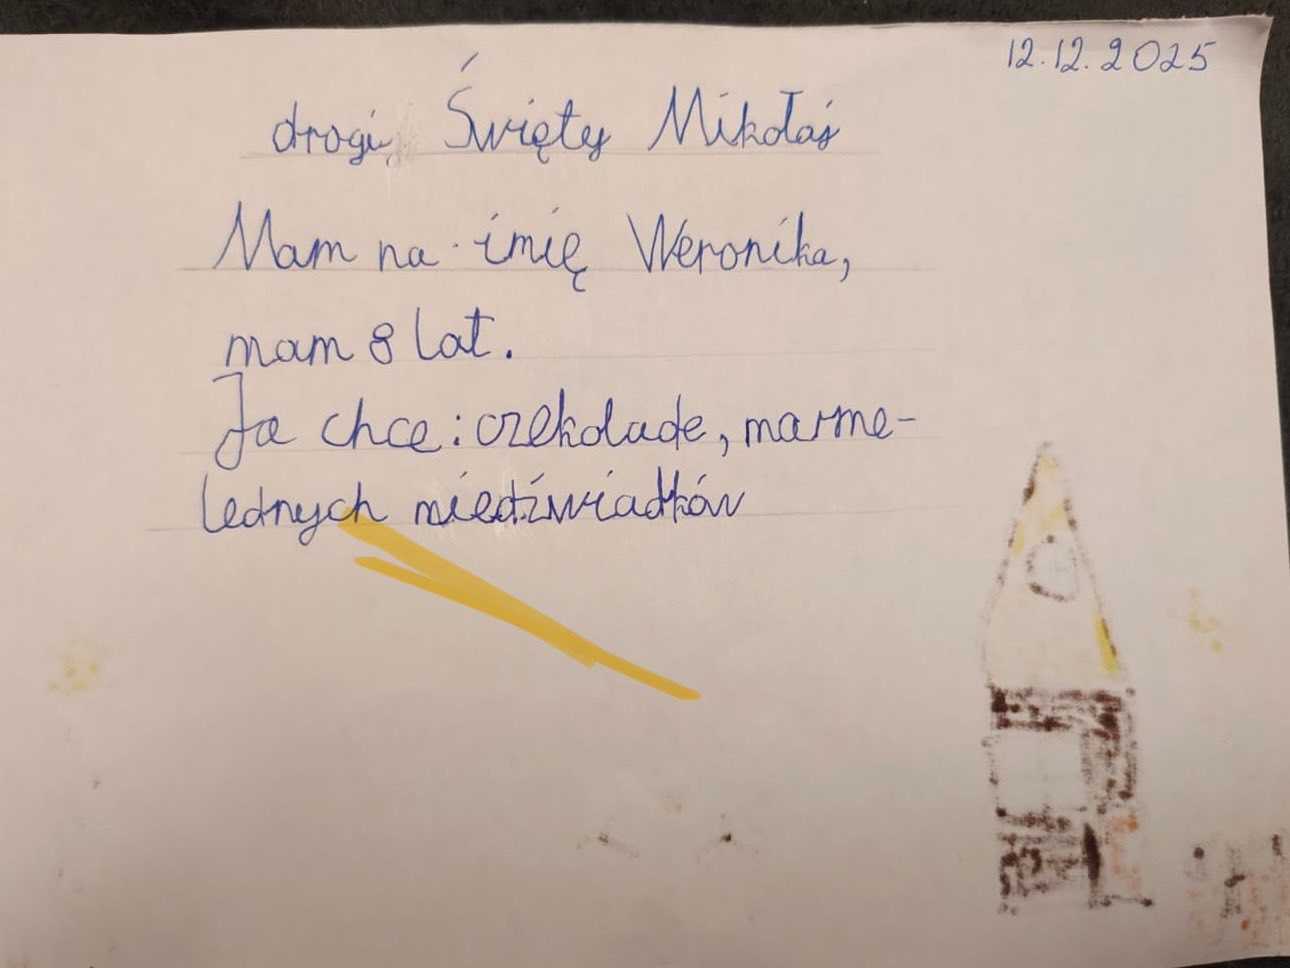 12.12.2025
drogi, Święty Mikołaj
Mam na imię Weronika,
mam 8 lat.
Ja chce: czekolade, marme-
lednych niedźwiadków